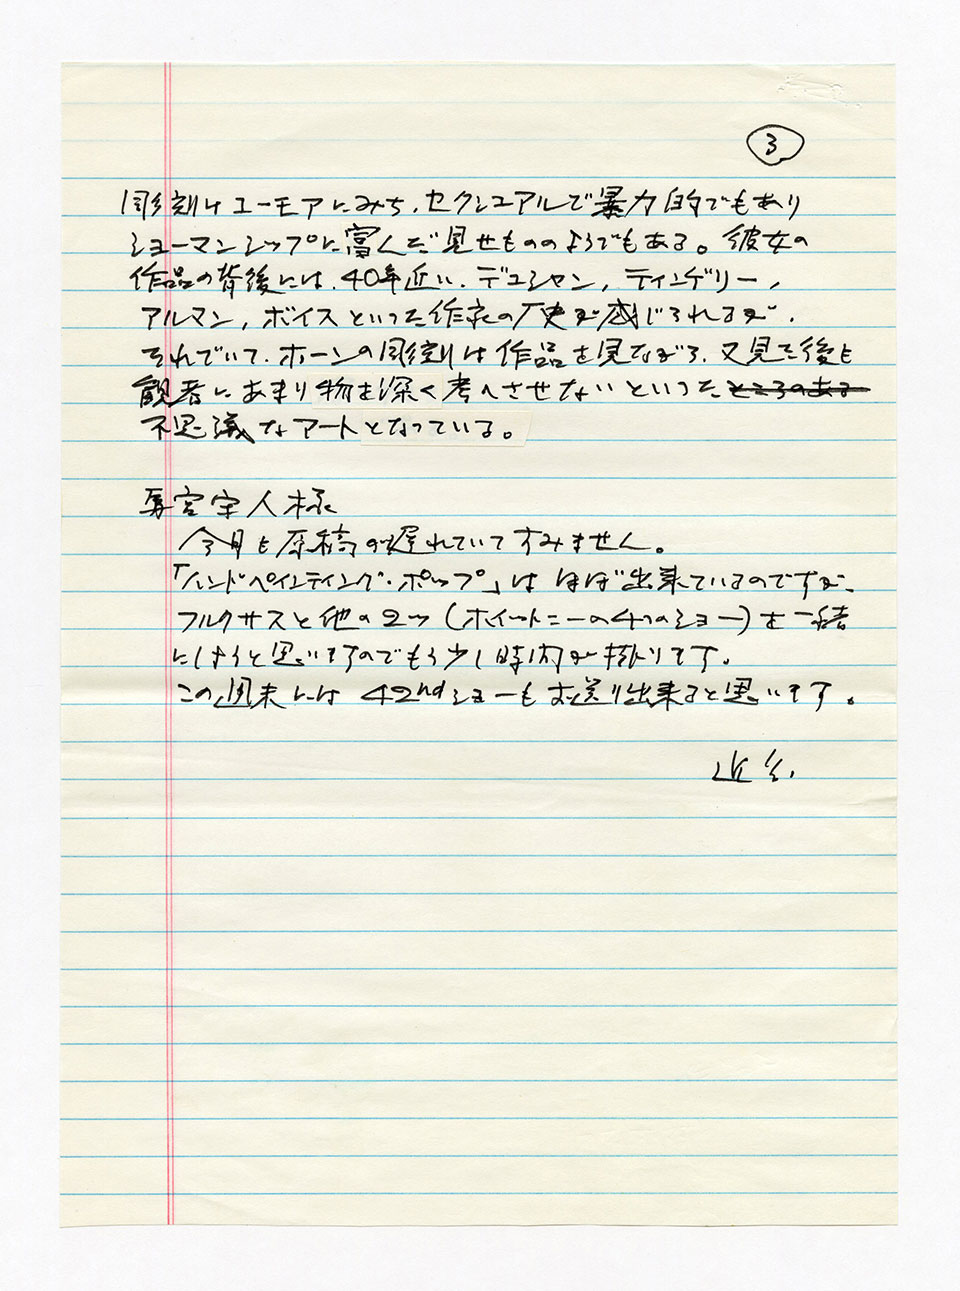 3
彫刻はユーモアにみち、セクシュアルで暴力的でもあり
ショーマンシップに富んだ見せもののようでもある。彼女の
作品の背後には、40年近い、デュシャン、ティンゲリー、
アルマン、ボイスといった作家の歴史が感じられるが、
それでいて、ホーンの彫刻は作品を見ながら、又見た後も
観者にあまり物を深く考へさせないといったところのある
不思議なアートとなっている。
宮宇人様
今月も原稿が遅れていてすみません。
「ハンドペインティング・ポップ」はほぼ出来ているのですが、
フルクサスと他の2ツ(ホイットニーの4つのショー)を一緒
にしようと思いますのでもう少し時間が掛ります。
この週末には42ndショーもお送り出来ると思います。
近